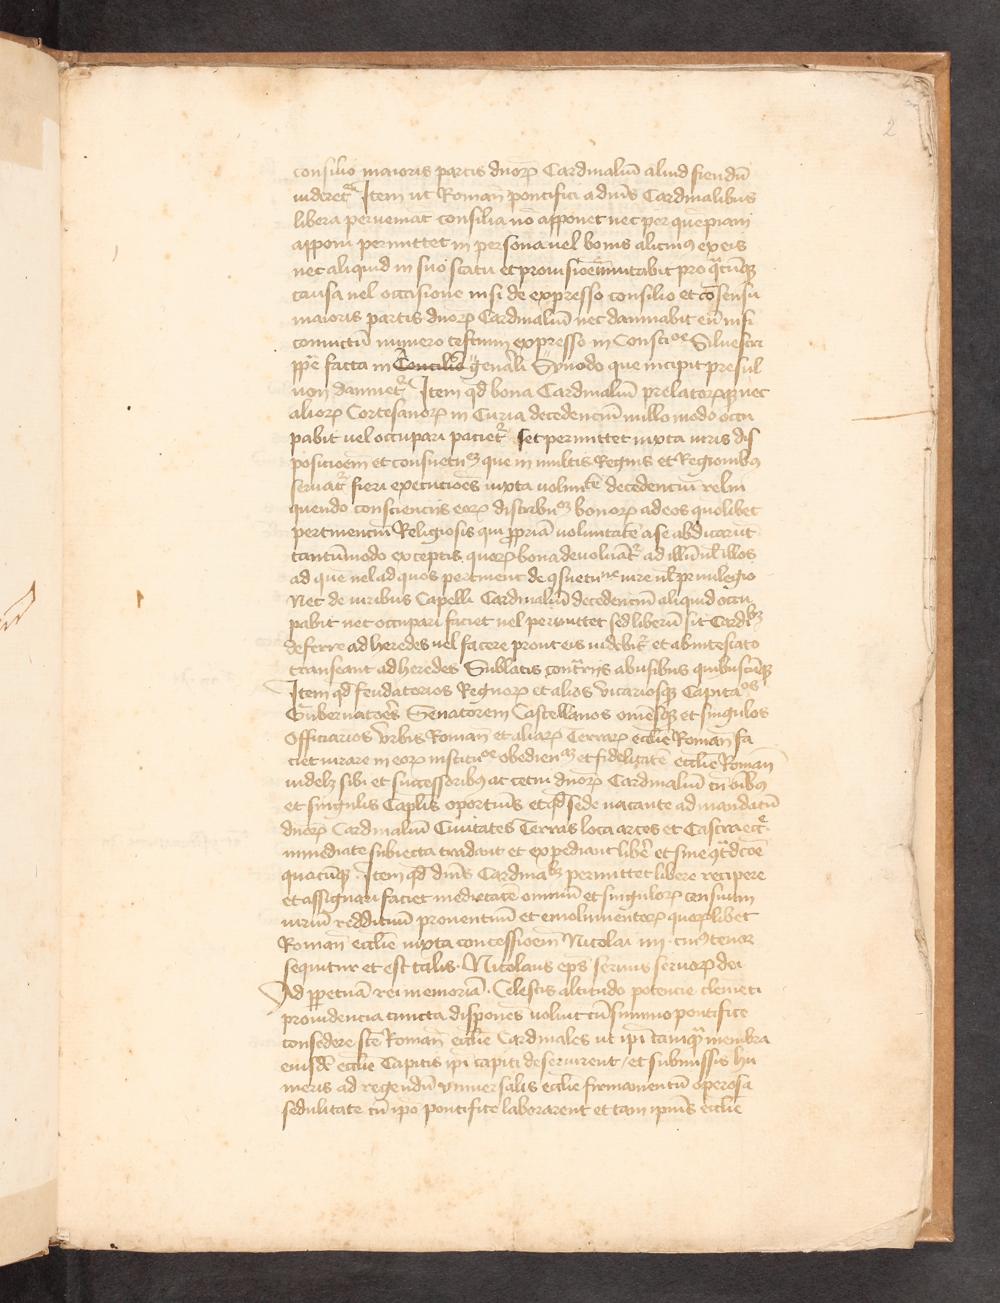 2
consilio maioris partis dnorꝝ Cardinaliū aliud fiendū
videret᷑ Item ut Roman̄ pontifici a dnīs Cardinalibus
libera perveniat consilia nō apponet nec per quēpiam
apponi permittet in persona vel bonis alicuiꝰ ex eis
nec aliquid in suo statu et provisioē mutabit pro
causa vel occisione nisi de expresso consilio et cōsensu
maioris partis dnorꝝ Cardinaliū nec damnabit eū nisi
convictū numero testium expresso in Silvestri
ppē facta in Concilio gen̄ali Synodo que incipit presul
non damnet᷑ Item qd bona Cardinaliū prelatorꝝqꝫ nec
aliorꝝ Cortesanorꝝ in Curia decedenciū nullo modo occu
pabit vel occupari paciet᷑ set permittet iuxta iuris dis
posicioem et consuetuꝫ que in multis Regnis et Regionibꝰ
servat᷑ fieri executioēs iuxta volunt̄ē decedenciū relin
quendo conscienciis eorꝝ distribuꝫ bonorꝝ ad eos quolibet
pertinenciū Religiosis qui ppriā voluntatē a se abdicarūt
tantūmodo exceptis quorꝝ bona devolvāt᷑ ad illū ul illos
ad quē vel ad quos pertinent de ꝯsuetune iure ul privilegio
Nec de iuribus Capelli Cardinaliū decedenciū aliquid occu
pabit nec occupari faciet vel permittet sed liberū sit Cardlibꝫ
deferre ad heredes vel facere prout eis videbit᷑ et ab intestato
transeant ad heredes Sublatis contrʳiis abusibus quibuscūqꝫ
Item qd feudatorios Regnorꝝ et alios vicariosqꝫ Capitaos
Gubernatorēs Senatorem Castellanos omēsqꝫ et singulos
Officiarios Vrbis Roman̄ et aliarꝝ Terrarꝝ ecclīe Roman̄ fa
ciet iurare in eorꝝ instituoe obedienꝫ et fidelitatē ecclīe Roman̄
videlꝫ sibi et successoribꝰ ac cetui dnorꝝ Cardinaliū cū oībꝰ
et singulis Caplīs oportunīs et qd sede vacante ad mandatū
dnorꝝ Cardinaliū Civitates Terras loca arces et Castra ecce
immediate subiecta tradant et expediant liberē et sine ꝯtᵃdcōe
quacūqꝫ Item qd dnīs Cardinalibꝫ permittet libere recipere
et assignari faciet medietatē omniū et singulorꝝ censuum
iuriū reddituū proventuū et emolumentorꝝ quorūlibet
Roman̄ ecclīe iuxta concessioēm Nicolai iiii· cuiꝰ tenor
sequitur et est talis· Nicolaus epꝰ servus servorꝝ dei
Ad ppetuā rei memoriā· Celestis altitudo potencie clemēti
providencia cuncta dispones voluit cū summo pontifice
consedere scē Roman̄ ecclīe Cardinales ut ipī tamqᵃ membra
eiusdē ecclīe Capitis ipī capiti deservirent / et submissis hu
meris ad regendū universalis ecclīe firmamentū operosa
sedulitate cū ipō pontifice laborarent et tam ipīus ecclīe